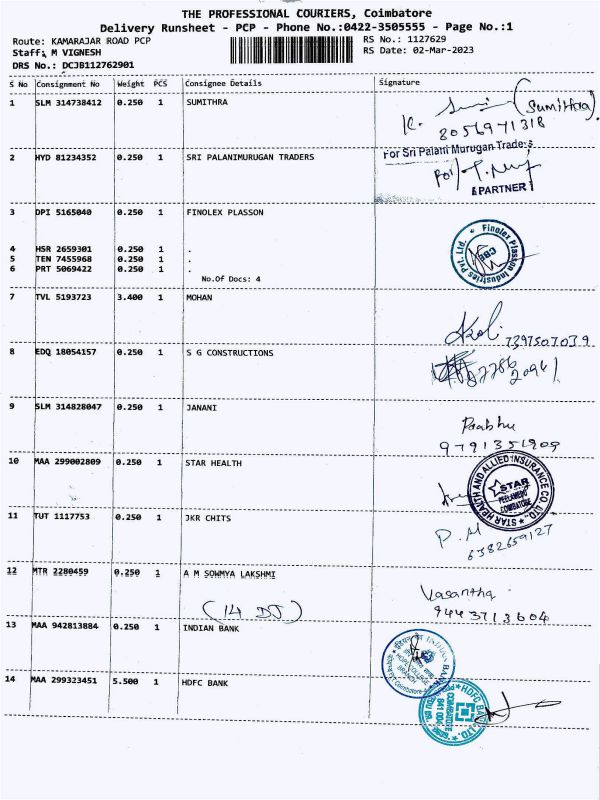 THE PROFESSIONAL COURIERS, Coimbatore
Delivery Runsheet - PCP - Phone No.:0422-3505555 - Page No.:1
Route: KAMARAJAR ROAD PCP RS No.: 1127629
Staff: M VIGNESH RS Date: 02-Mar-2023
DRS No.: DCJB112762901
S No Consignment No Weight PCS Consignee Details Signature
1 SLM 314738412 0.250 1 SUMITHRA
K. (Sumithra)
8056971318
2 HYD 81234352 0.250 1 SRI PALANIMURUGAN TRADERS
For Sri Palani Murugan Traders
PARTNER
3 DPI 5165040 0.250 1 FINOLEX PLASSON
Finolex Plasson Industries Pvt. Ltd. CBE
4 HSR 2659301 0.250 1 .
5 TEN 7455968 0.250 1 .
6 PRT 5069422 0.250 1 .
No.Of Docs: 4
7 TVL 5193723 3.400 1 MOHAN
7397507039
8 EDQ 18054157 0.250 1 S G CONSTRUCTIONS
9 SLM 314828047 0.250 1 JANANI
Prabhu
9791351909
10 MAA 299002809 0.250 1 STAR HEALTH
STAR HEALTH AND ALLIED INSURANCE CO. LTD.
STAR
PEELAMEDU
COIMBATORE
11 TUT 1117753 0.250 1 JKR CHITS
P.M
6382659127
12 MTR 2280459 0.250 1 A M SOWMYA LAKSHMI
Vasantha
9443713604
(14 DJ)
13 MAA 942813884 0.250 1 INDIAN BANK
INDIAN BANK
BRANCH
14 MAA 299323451 5.500 1 HDFC BANK
HDFC BANK LTD.
COIMBATORE
641 004